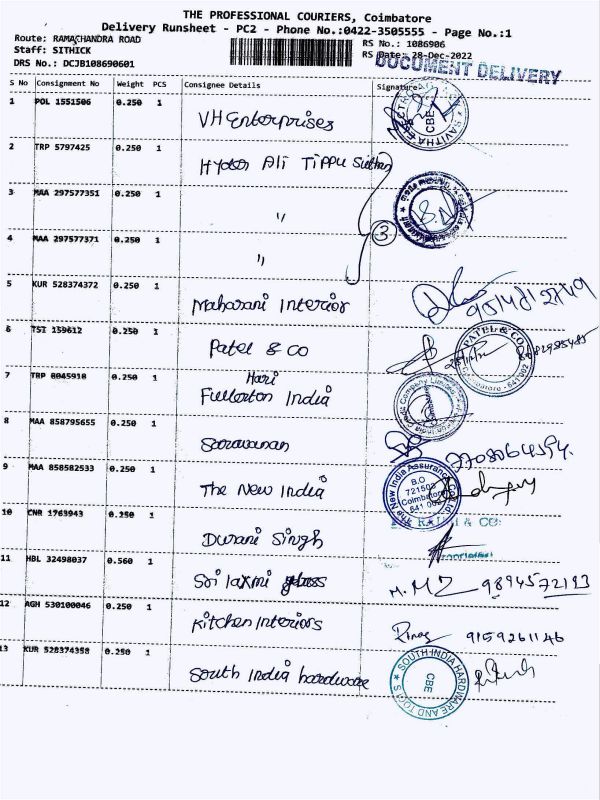 THE PROFESSIONAL COURIERS, Coimbatore
Delivery Runsheet - PC2 - Phone No.:0422-3505555 - Page No.:1
Route: RAMACHANDRA ROAD
RS No.: 1086906
Staff: SITHICK
RS Date: 28-Dec-2022
DRS No.: DCJB108690601
DOCUMENT DELIVERY
S No Consignment No Weight PCS Consignee Details Signature
1 POL 1551506 0.250 1 VH Enterprises
CBE
2 TRP 5797425 0.250 1 Hyder Ali Tippu Sulthan
3 MAA 297577351 0.250 1 "
4 MAA 297577371 0.250 1 " 3
5 KUR 528374372 0.250 1 Maharani Interior
6 TSI 159612 0.250 1 Patel & Co
PATEL & CO
641 002
7 TRP 0045918 0.250 1 Hari Fullerton India
8 MAA 858795655 0.250 1 Saravanan
9 MAA 858582533 0.250 1 The New India
The New India Assurance
B.O
721503
Coimbatore
641 002
10 CNR 1763943 0.250 1 Durani Singh
& CO.
Proprietor
11 HBL 32498037 0.560 1 Sri laxmi glass
9894572193
12 AGH 530100046 0.250 1 Kitchen Interiors
9159261146
13 KUR 528374358 0.250 1 South India hardware
SOUTH INDIA HARDWARE AND TOOLS
CBE